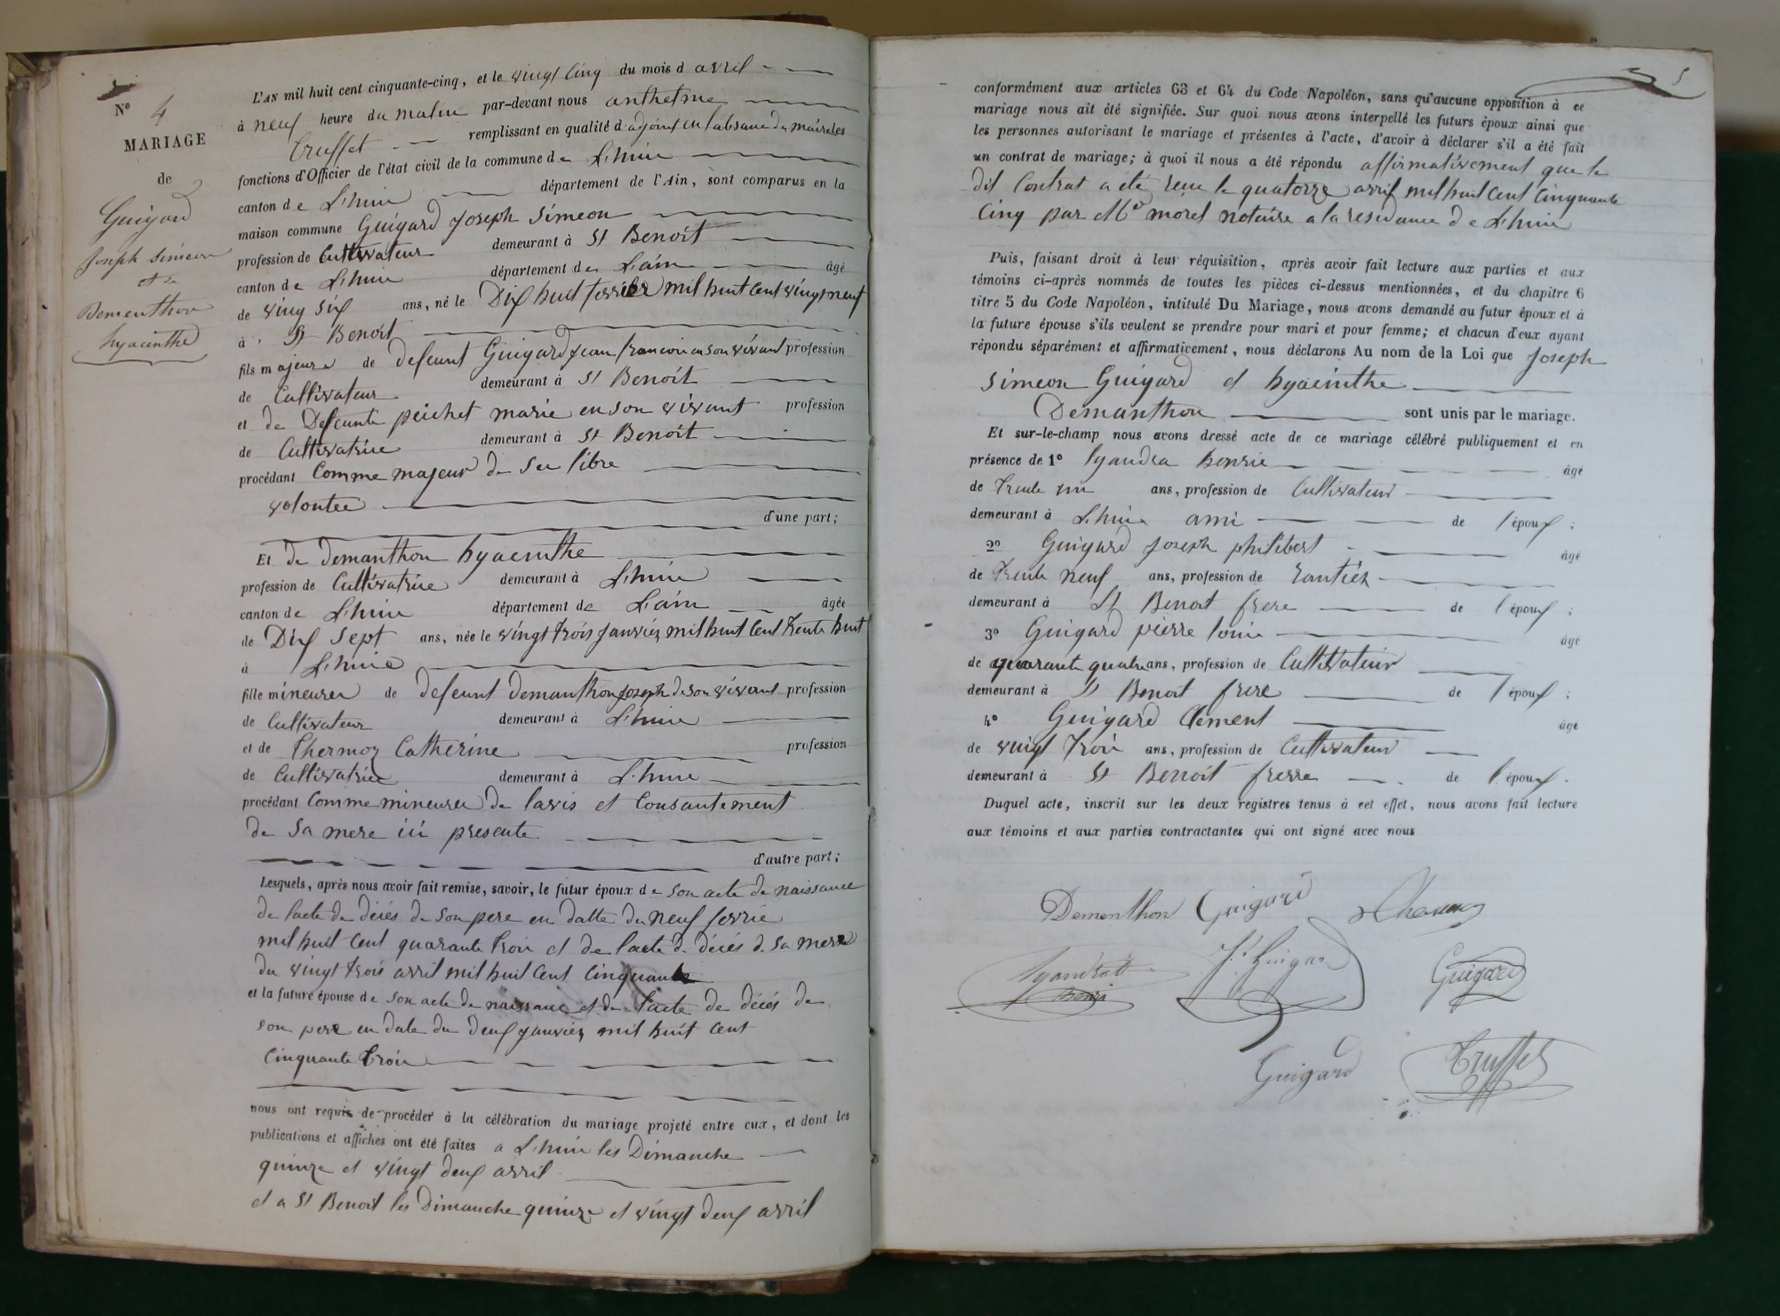 N° 4
MARIAGE
de
Guigard
Joseph Siméon
et de
Dementhon
hyacinthe
L'AN mil huit cent cinquante-cinq, et le vingt Cinq du mois d avril
à neuf heure du matin par-devant nous anthelme
Truffet remplissant en qualité d adjoint en labsance du maire les
fonctions d'Officier de l'état civil de la commune de L'huis
canton de L'huis département de l'Ain, sont comparus en la
maison commune Guigard Joseph Siméon
profession de Cultivateur demeurant à St Benoit
canton de L'huis département de L'ain âgé
de ving six ans, né le Dix huit fevrier mil huit Cent vingt neuf
à St Benoit
fils majeure de defeunt Guigard jean francois en son vivant profession
de Cultivateur demeurant à St Benoit
et de Defeunte peichet marie en son vivant profession
de Cultivatrice demeurant à St Benoit
procédant Comme majeur de sa libre
volontee
d'une part;
Et de demanthon hyacinthe
profession de Cultivatrice demeurant à L'huis
canton de L'huis département de L'ain âgée
de Dix Sept ans, née le vingt trois janvier mil huit Cent trente huit
à L'huis
fille mineure de defeunt demanthon joseph de son vivant profession
de Cultivateur demeurant à L'huis
et de thermoz Catherine profession
de Cultivatrice demeurant à L'huis
procédant Comme mineure de lavis et Consantement
de sa mere ici presente
d'autre part;
Lesquels, après nous avoir fait remise, savoir, le futur époux de son acte de naissance
de lacte de décés de son pere en datte du neuf fevrie
mil huit Cent quarante trois et de lacte de décés de sa mere
du vingt trois avril mil huit Cent Cinquante
et la future épouse de son acte de naissance et de lacte de décés de
son pere en date du deux janvier mil huit Cent
Cinquante trois
nous ont requis de procéder à la célébration du mariage projeté entre eux, et dont les
publications et affiches ont été faites a L'huis les Dimanche
quinze et vingt deux avril
et a St Benoit les Dimanche quinze et vingt deux avril
5
conformément aux articles 63 et 64 du Code Napoléon, sans qu'aucune opposition à ce
mariage nous ait été signifiée. Sur quoi nous avons interpellé les futurs époux ainsi que
les personnes autorisant le mariage et présentes à l'acte, d'avoir à déclarer s'il a été fait
un contrat de mariage; à quoi il nous a été répondu affirmativement que le
dit Contrat a été reçu le quatorze avril mil huit Cent Cinquante
Cinq par Me morel notaire a la residance de L'huis
Puis, faisant droit à leur réquisition, après avoir fait lecture aux parties et aux
témoins ci-après nommés de toutes les pièces ci-dessus mentionnées, et du chapitre 6
titre 5 du Code Napoléon, intitulé Du Mariage, nous avons demandé au futur époux et à
la future épouse s'ils veulent se prendre pour mari et pour femme; et chacun d'eux ayant
répondu séparément et affirmativement, nous déclarons Au nom de la Loi que Joseph
Simeon Guigard et hyacinthe
Demanthon sont unis par le mariage.
Et sur-le-champ nous avons dressé acte de ce mariage célébré publiquement et en
présence de 1° âgé
de trente un ans, profession de Cultivateur
demeurant à L'huis ami de l'époux;
2° Guigard joseph philibert âgé
de trente neuf ans, profession de rantiés
demeurant à St Benoit frere de l'époux;
3° Guigard pierre louis âgé
de quarante quatre ans, profession de Cultivateur
demeurant à St Benoit frere de l'époux;
4° Guigard Clement âgé
de vingt trois ans, profession de Cultivateur
demeurant à St Benoit frerre de l'époux.
Duquel acte, inscrit sur les deux registres tenus à cet effet, nous avons fait lecture
aux témoins et aux parties contractantes qui ont signé avec nous
Dementhon Guigard
Guigard
Guigard Truffet